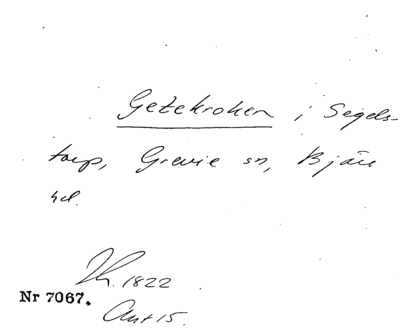 Getekroken i Segels-
torp, Grevie sn, Bjäre
hd.
Th. 1822
Nr 7067.
Ant 15.